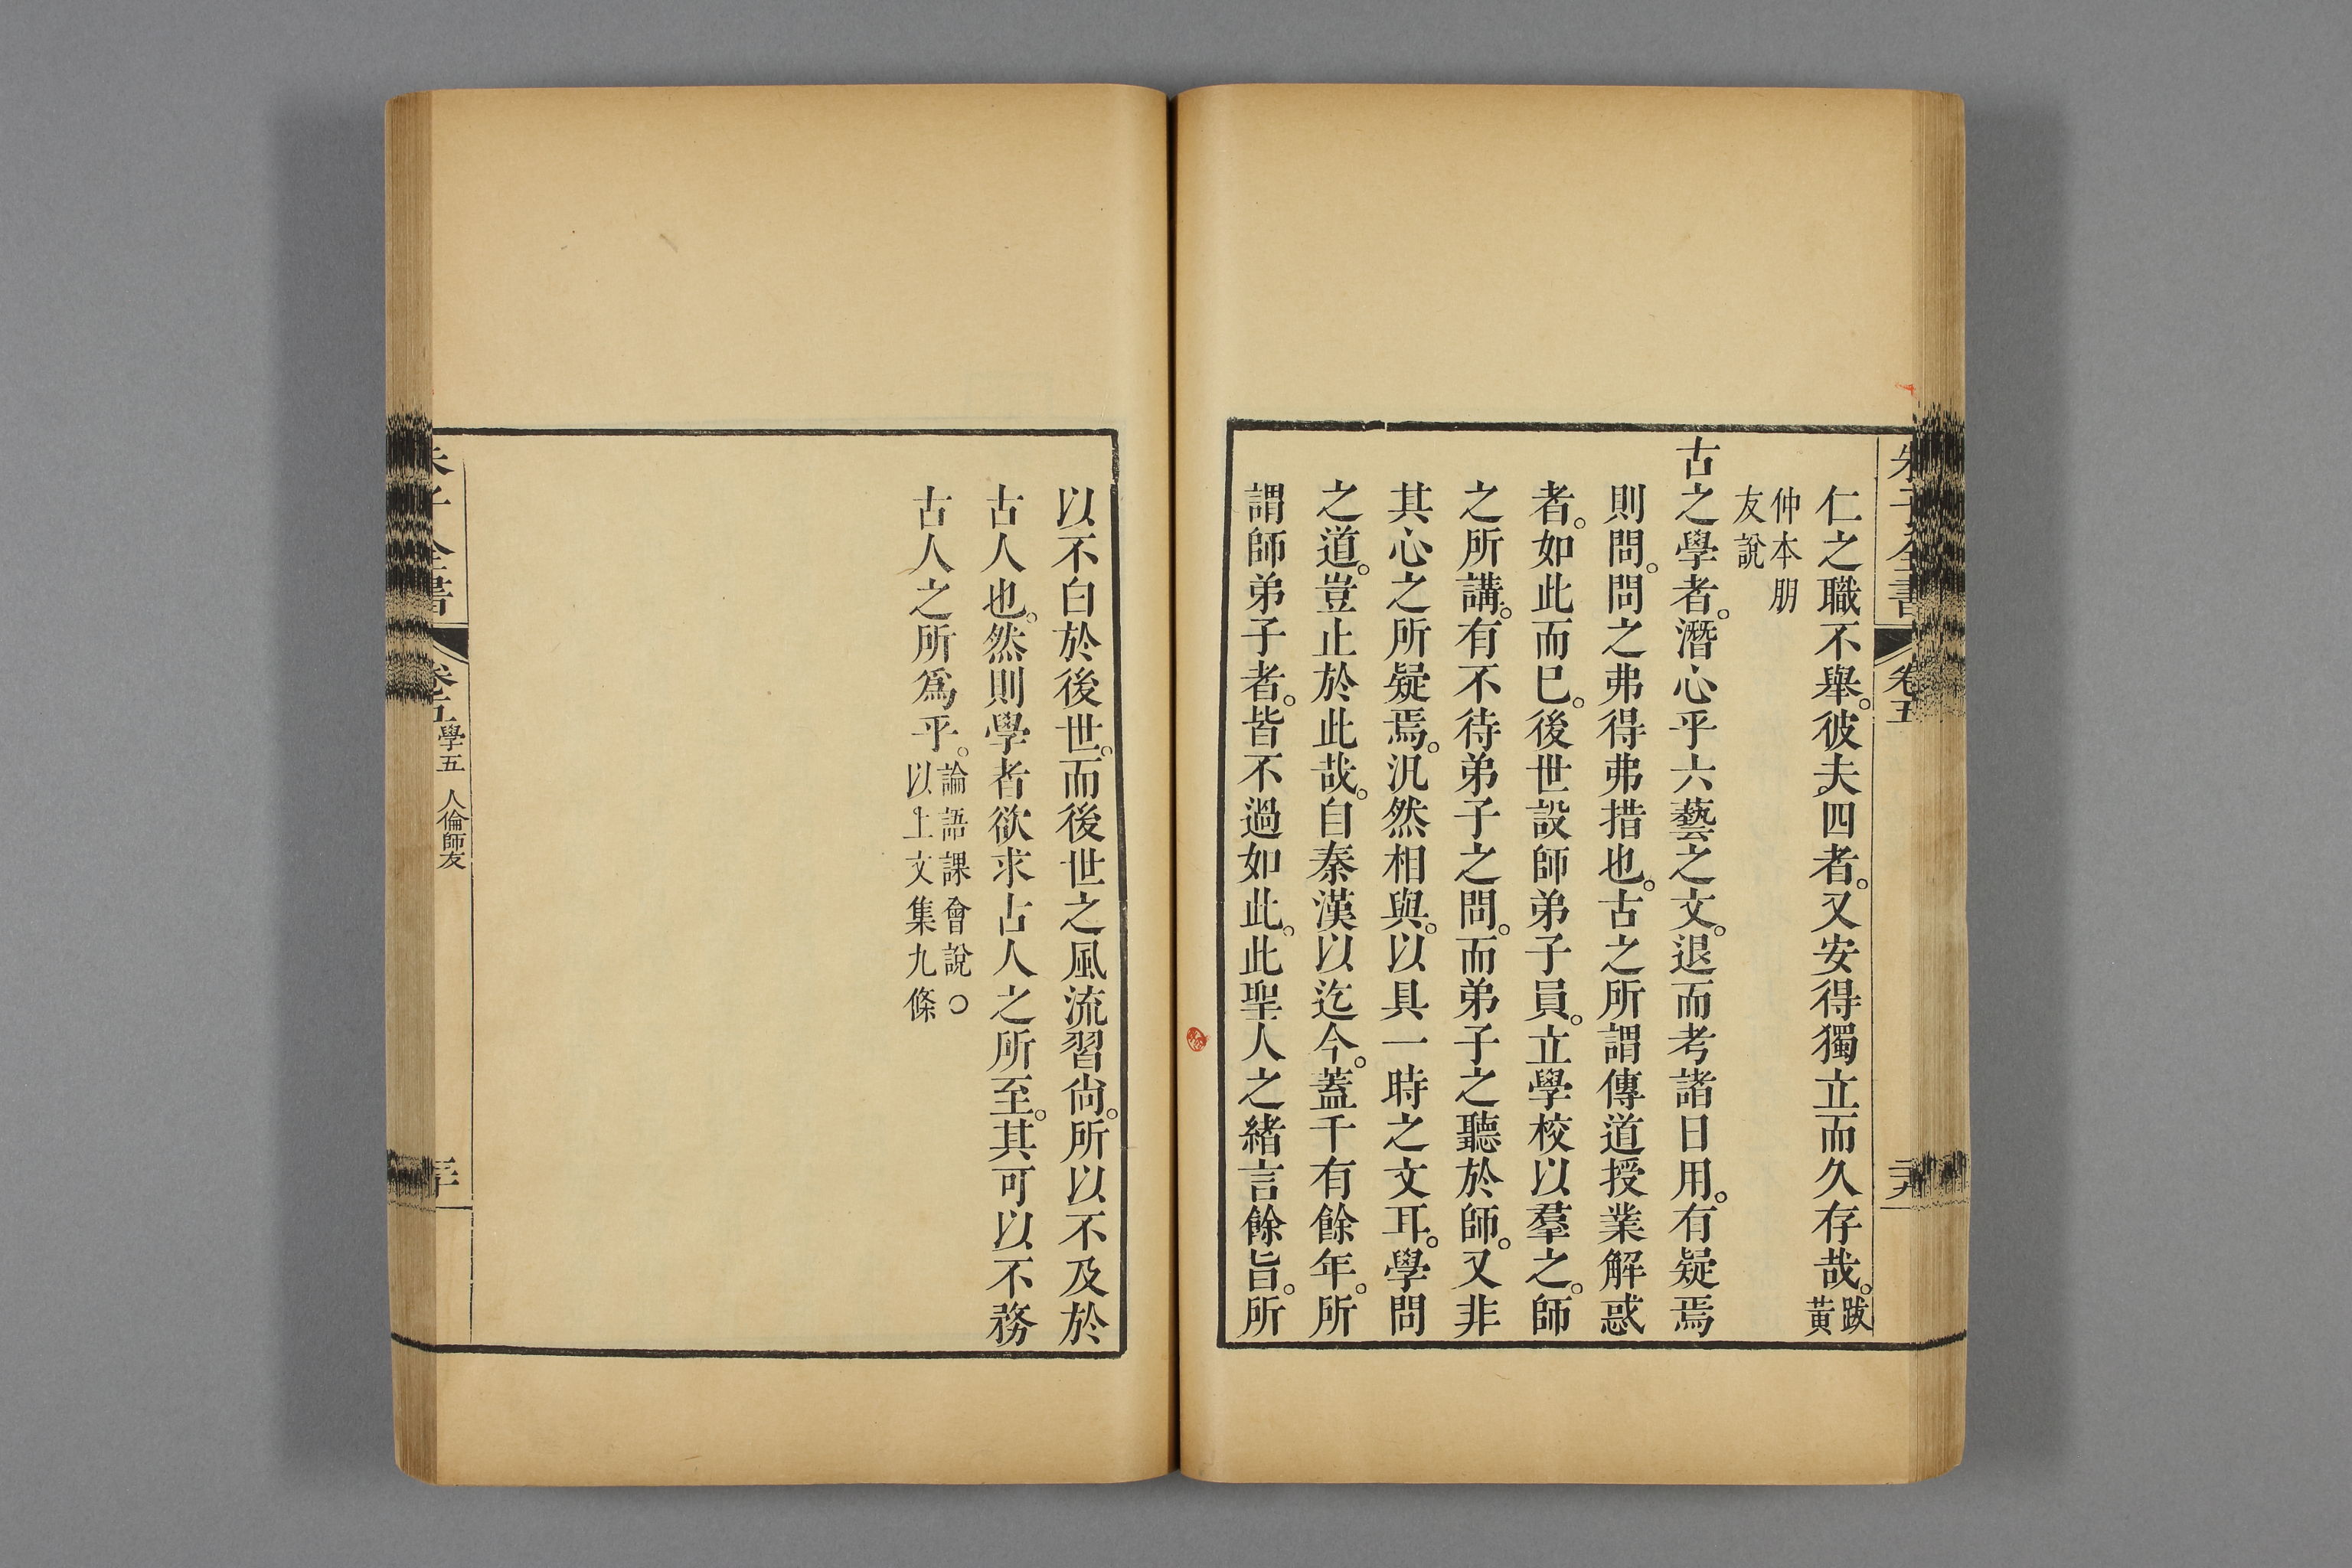 朱子全書 卷五 二十九
仁之職不舉。彼夫四者。又安得獨立而久存哉。跋黃
仲本朋
友說
古之學者。潛心乎六藝之文。退而考諸日用。有疑焉
則問。問之弗得弗措也。古之所謂傳道授業解惑
者。如此而已。後世設師弟子員。立學校以羣之。師
之所講。有不待弟子之問。而弟子之聽於師。又非
其心之所疑焉。汎然相與。以具一時之文耳。學問
之道。豈止於此哉。自秦漢以迄今。蓋千有餘年。所
謂師弟子者。皆不過如此。此聖人之緒言餘旨。所
以不白於後世。而後世之風流習尚。所以不及於
古人也。然則學者欲求古人之所至。其可以不務
古人之所爲乎。論語課會說○
以上文集九條
朱子全書 卷五 學五 人倫師友 三十